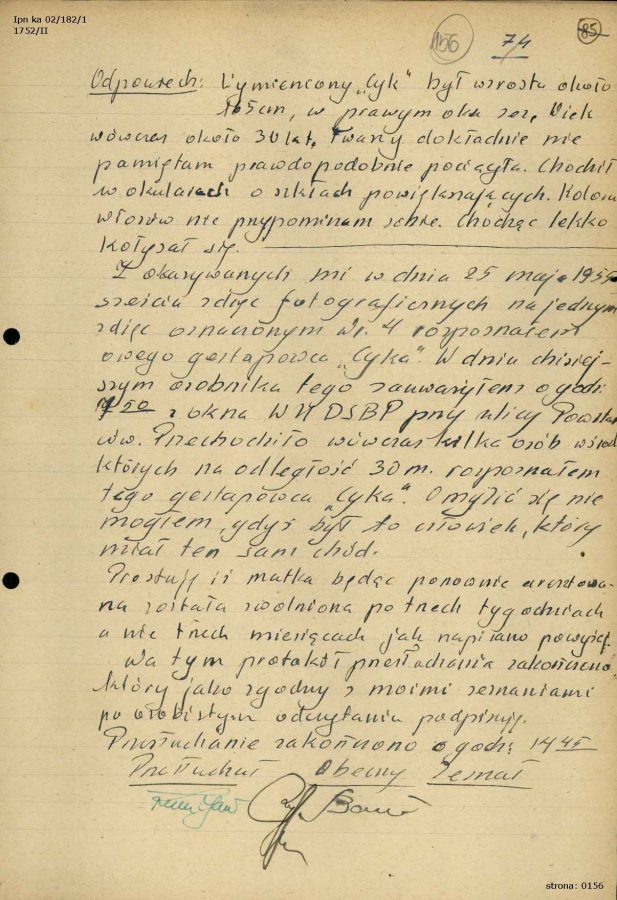 Ipn ka 02/182/1
1752/II
156
74
85
Odpowiedź: Wymieniony „Cyk" był wzrostu około
165cm, w prawym oku zez, Wiek
wówczas około 30 lat, Twarzy dokładnie nie
pamiętam prawdopodobnie pociągła. Chodził
w okularach o szkłach powiększających. Koloru
włosów nie przypominam sobie. Chodząc lekko
kołysał się.
Z okazywanych mi w dniu 25 maja 1955
sześciu zdjęć fotograficznych na jednym
zdjęc oznaczonym Nr. 4 rozpoznałem
owego gestapowca „Cyka". W dniu dzisiej-
szym osobnika tego zauważyłem o godz.
50 z okna WUDSBP przy ulicy Powstań
ów. Przechodziło wówczas kilka osób wśród
których na odległość 30 m. rozpoznałem
tego gestapowca „Cyka". Omylić się nie
mogłem, gdyż był to człowiek, który
miał ten sam chód.
Prostuję iż matka będąc ponownie aresztowa-
na została zwolniona po trzech tygodniach
a nie trzech miesiącach jak napisano powyżej.
Na tym protokół przesłuchania zakończono
który jako zgodny z moimi zeznaniami
po osobistym odczytaniu podpisuję.
Przesłuchanie zakończono o godz. 14 45
Przesłuchał Obecny Zeznał
strona: 0156